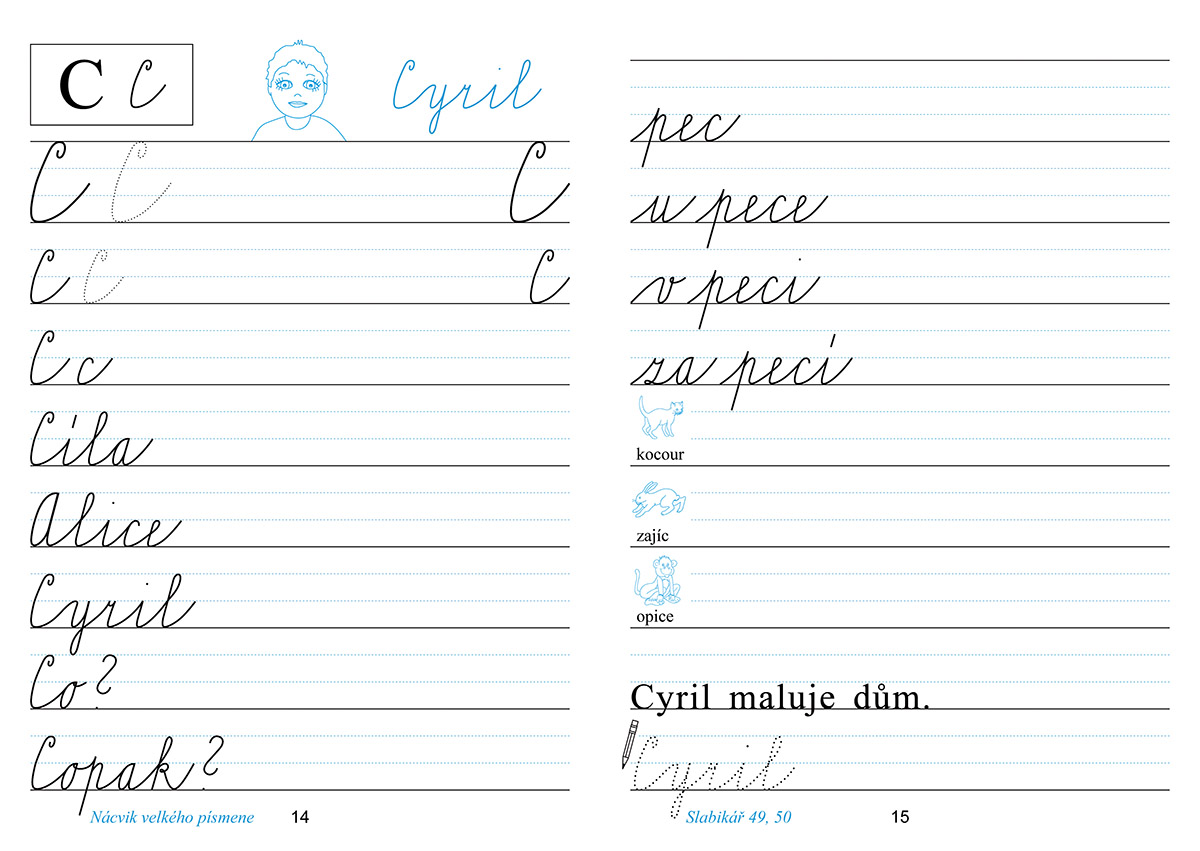 C C Cyril
C C C
C C C
C c
Cíla
Alice
Cyril
Co?
Copak?
Nácvik velkého písmene 14
pec
u pece
v peci
za pecí
kocour
zajíc
opice
Cyril maluje dům.
Cyril
Slabikář 49, 50 15